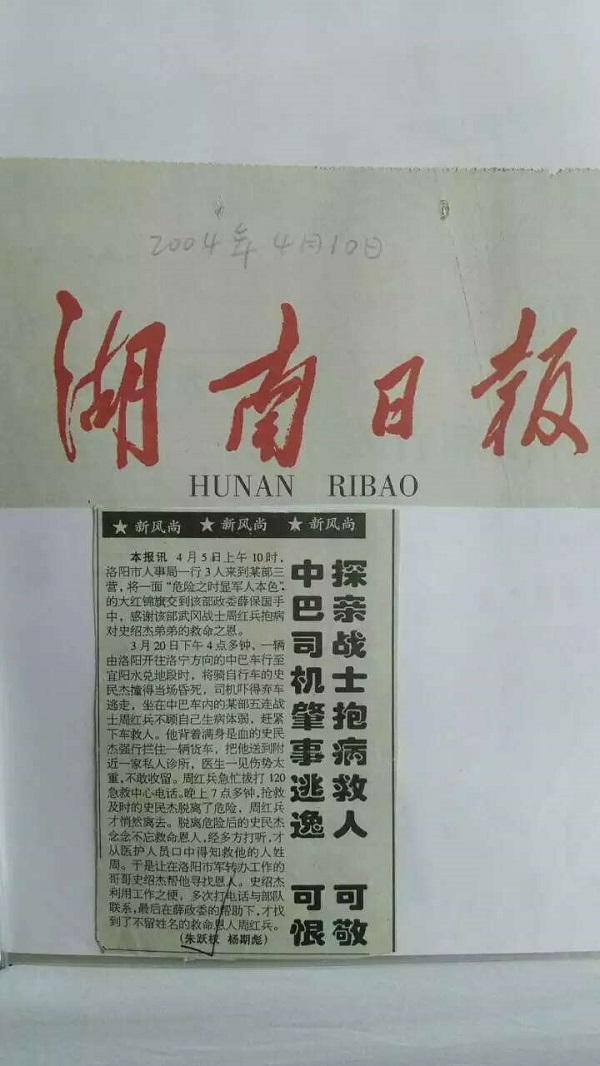 2004年4月10日
湖南日报
HUNAN RIBAO
★ 新风尚 ★ 新风尚 ★ 新风尚
探亲战士抱病救人 可敬
中巴司机肇事逃逸 可恨
本报讯 4月5日上午10时，
洛阳市人事局一行3人来到某部三
营，将一面“危险之时显军人本色”
的大红锦旗交到该部政委薛保国手
中，感谢该部武冈战士周红兵抱病
对史绍杰弟弟的救命之恩。
3月20日下午4点多钟，一辆
由洛阳开往洛宁方向的中巴车行至
宜阳水兑地段时，将骑自行车的史
民杰撞得当场昏死，司机吓得弃车
逃走，坐在中巴车内的某部五连战
士周红兵不顾自己生病体弱，赶紧
下车救人。他背着满身是血的史民
杰强行拦住一辆货车，把他送到附
近一家私人诊所，医生一见伤势太
重，不敢收留。周红兵急忙拔打120
急救中心电话。晚上7点多钟，抢救
及时的史民杰脱离了危险，周红兵
才悄然离去。脱离危险后的史民杰
念念不忘救命恩人，经多方打听，才
从医护人员口中得知救他的人姓
周。于是让在洛阳市军转办工作的
哥哥史绍杰帮他寻找恩人。史绍杰
利用工作之便，多次打电话与部队
联系，最后在薛政委的帮助下，才找
到了不留姓名的救命恩人周红兵。
（朱跃权 杨期彪）